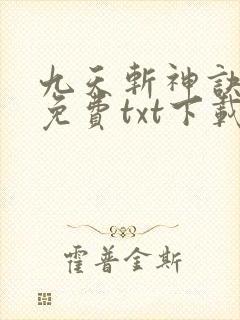 九天斬神訣
免費txt下載
霍普金斯